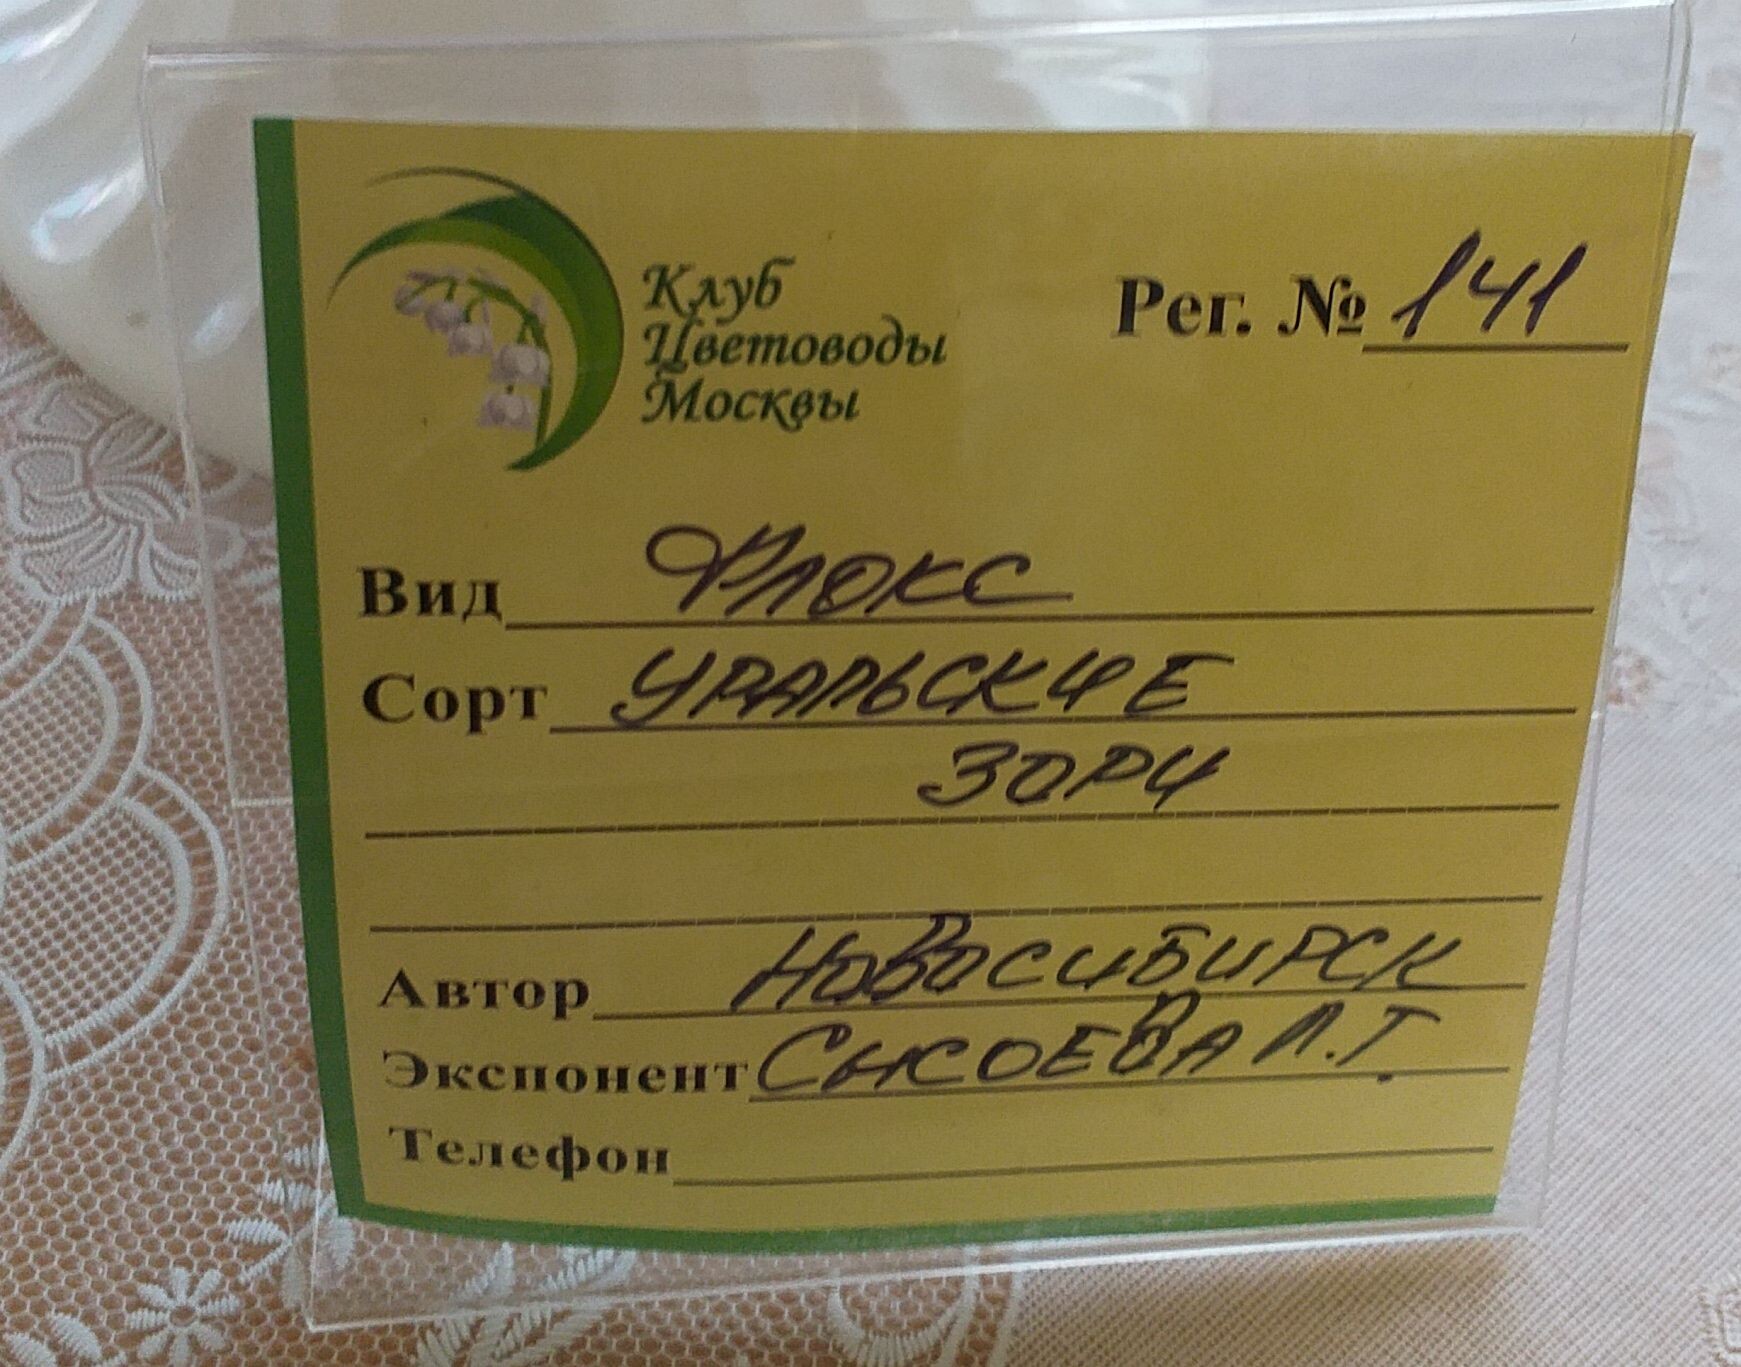 Клуб
Цветоводы
Москвы
Рег. № 141
Вид Флокс
Сорт УРАЛЬСКИЕ
ЗОРИ
Автор НОВОСИБИРСК
Экспонент СЫСОЕВА Л.Т.
Телефон